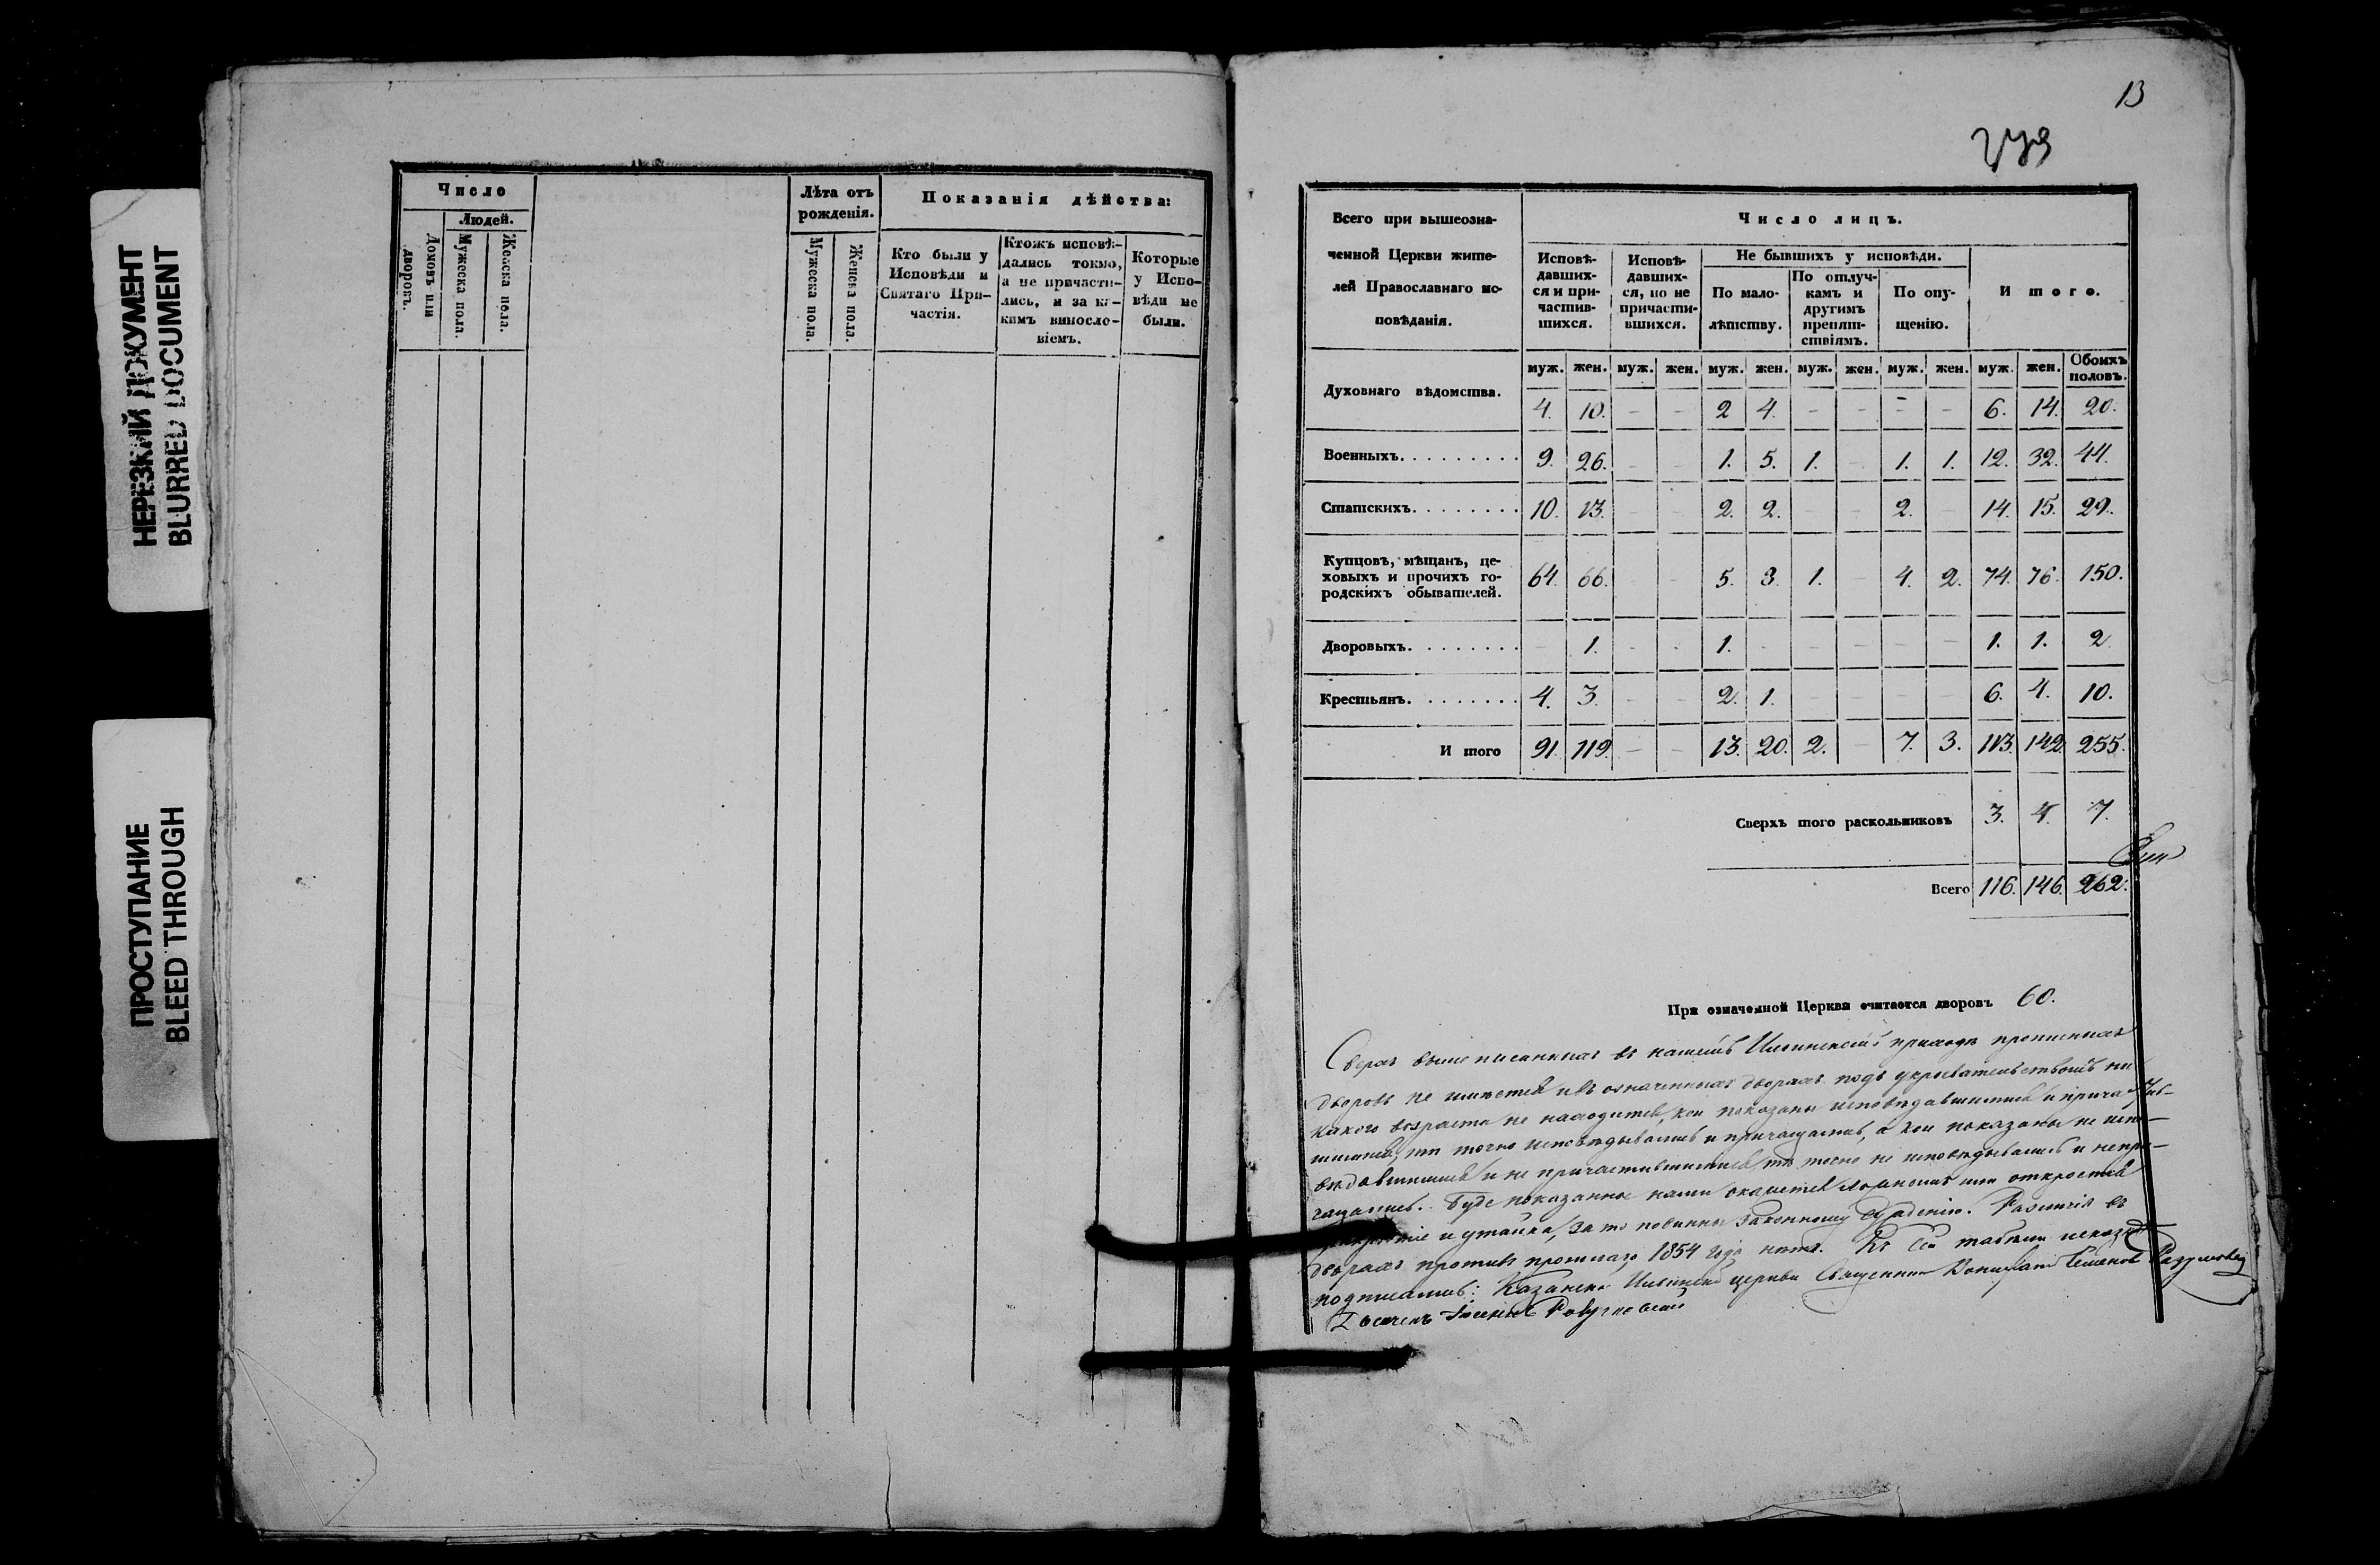 НЕРЕЗКИЙ ДОКУМЕНТ
BLURRED DOCUMENT
ПРОСТУПАНИЕ
BLEED THROUGH
Число
Людей.
Домовъ или дворовъ.
Мужеска пола.
Женска пола.
Лѣта отъ рожденія.
Мужеска пола.
Женска пола.
Показанія дѣйства:
Кто были у Исповѣди и Святаго Причастія.
Ктожъ исповѣ-
дались токмо,
а не причасти-
лись, и за ка-
кимъ виносло-
віемъ.
Которые
у Испо-
вѣди не
были.
13
Всего при вышеозна-
ченной Церкви жите-
лей Православнаго ис-
повѣданія.
Число лицъ.
Исповѣ-
давших-
ся и при-
частив-
шихся.
Исповѣ-
давших-
ся, но не
причасти-
вшихся.
Не бывшихъ у исповѣди.
По мало-
лѣтству.
По отлуч-
камъ и
другимъ
препят-
ствіямъ.
По опу-
щенію.
Итого.
муж. жен. муж. жен. муж. жен. муж. жен. муж. жен. муж. жен. Обоихъ половъ.
Духовнаго вѣдомства. 4. 10. - - 2 4. - - - - 6. 14. 20.
Военныхъ. 9. 26. - - 1. 5. 1. - 1. 1. 12. 32. 44.
Статскихъ. 10. 13. - - 2. 2. - 2. - 14. 15. 29.
Купцовъ, мѣщанъ, це-
ховыхъ и прочихъ го-
родскихъ обывателей. 64. 66. - - 5. 8. 1. - 4. 2. 74. 76. 150.
Дворовыхъ. - 1. - - 1. - - - - - 1. 1. 2
Крестьянъ. 4. 3. - - 2. 1. - - - - 6. 4. 10.
Итого 91. 119. - - 13. 20. 2. - 7. 3. 113. 142. 255.
Сверхъ того раскольниковъ 3. 4. 7.
Всего 116. 146. 262.
При означенной Церкви считается дворовъ 60.
Сверхъ вышеписанныхъ въ нашемъ приходѣ
дворовъ не имѣется и въ означенныхъ дворахъ подъ укрывательствомъ ни
какого возраста не находится, кои показаны исповѣдавшимися и причастив-
шимися, тѣ точно исповѣдывались и причащались, а кои показаны не испо-
вѣдавшимися и не причастившимися тѣ точно не исповѣдывались и непри-
чащались. Буде показанное нами окажется ложнымъ или откроется
и утайка, за то повинны законному сужденію. въ
дворахъ противъ прошлаго 1854 года нѣтъ. Къ сей
подписались: церкви Священник